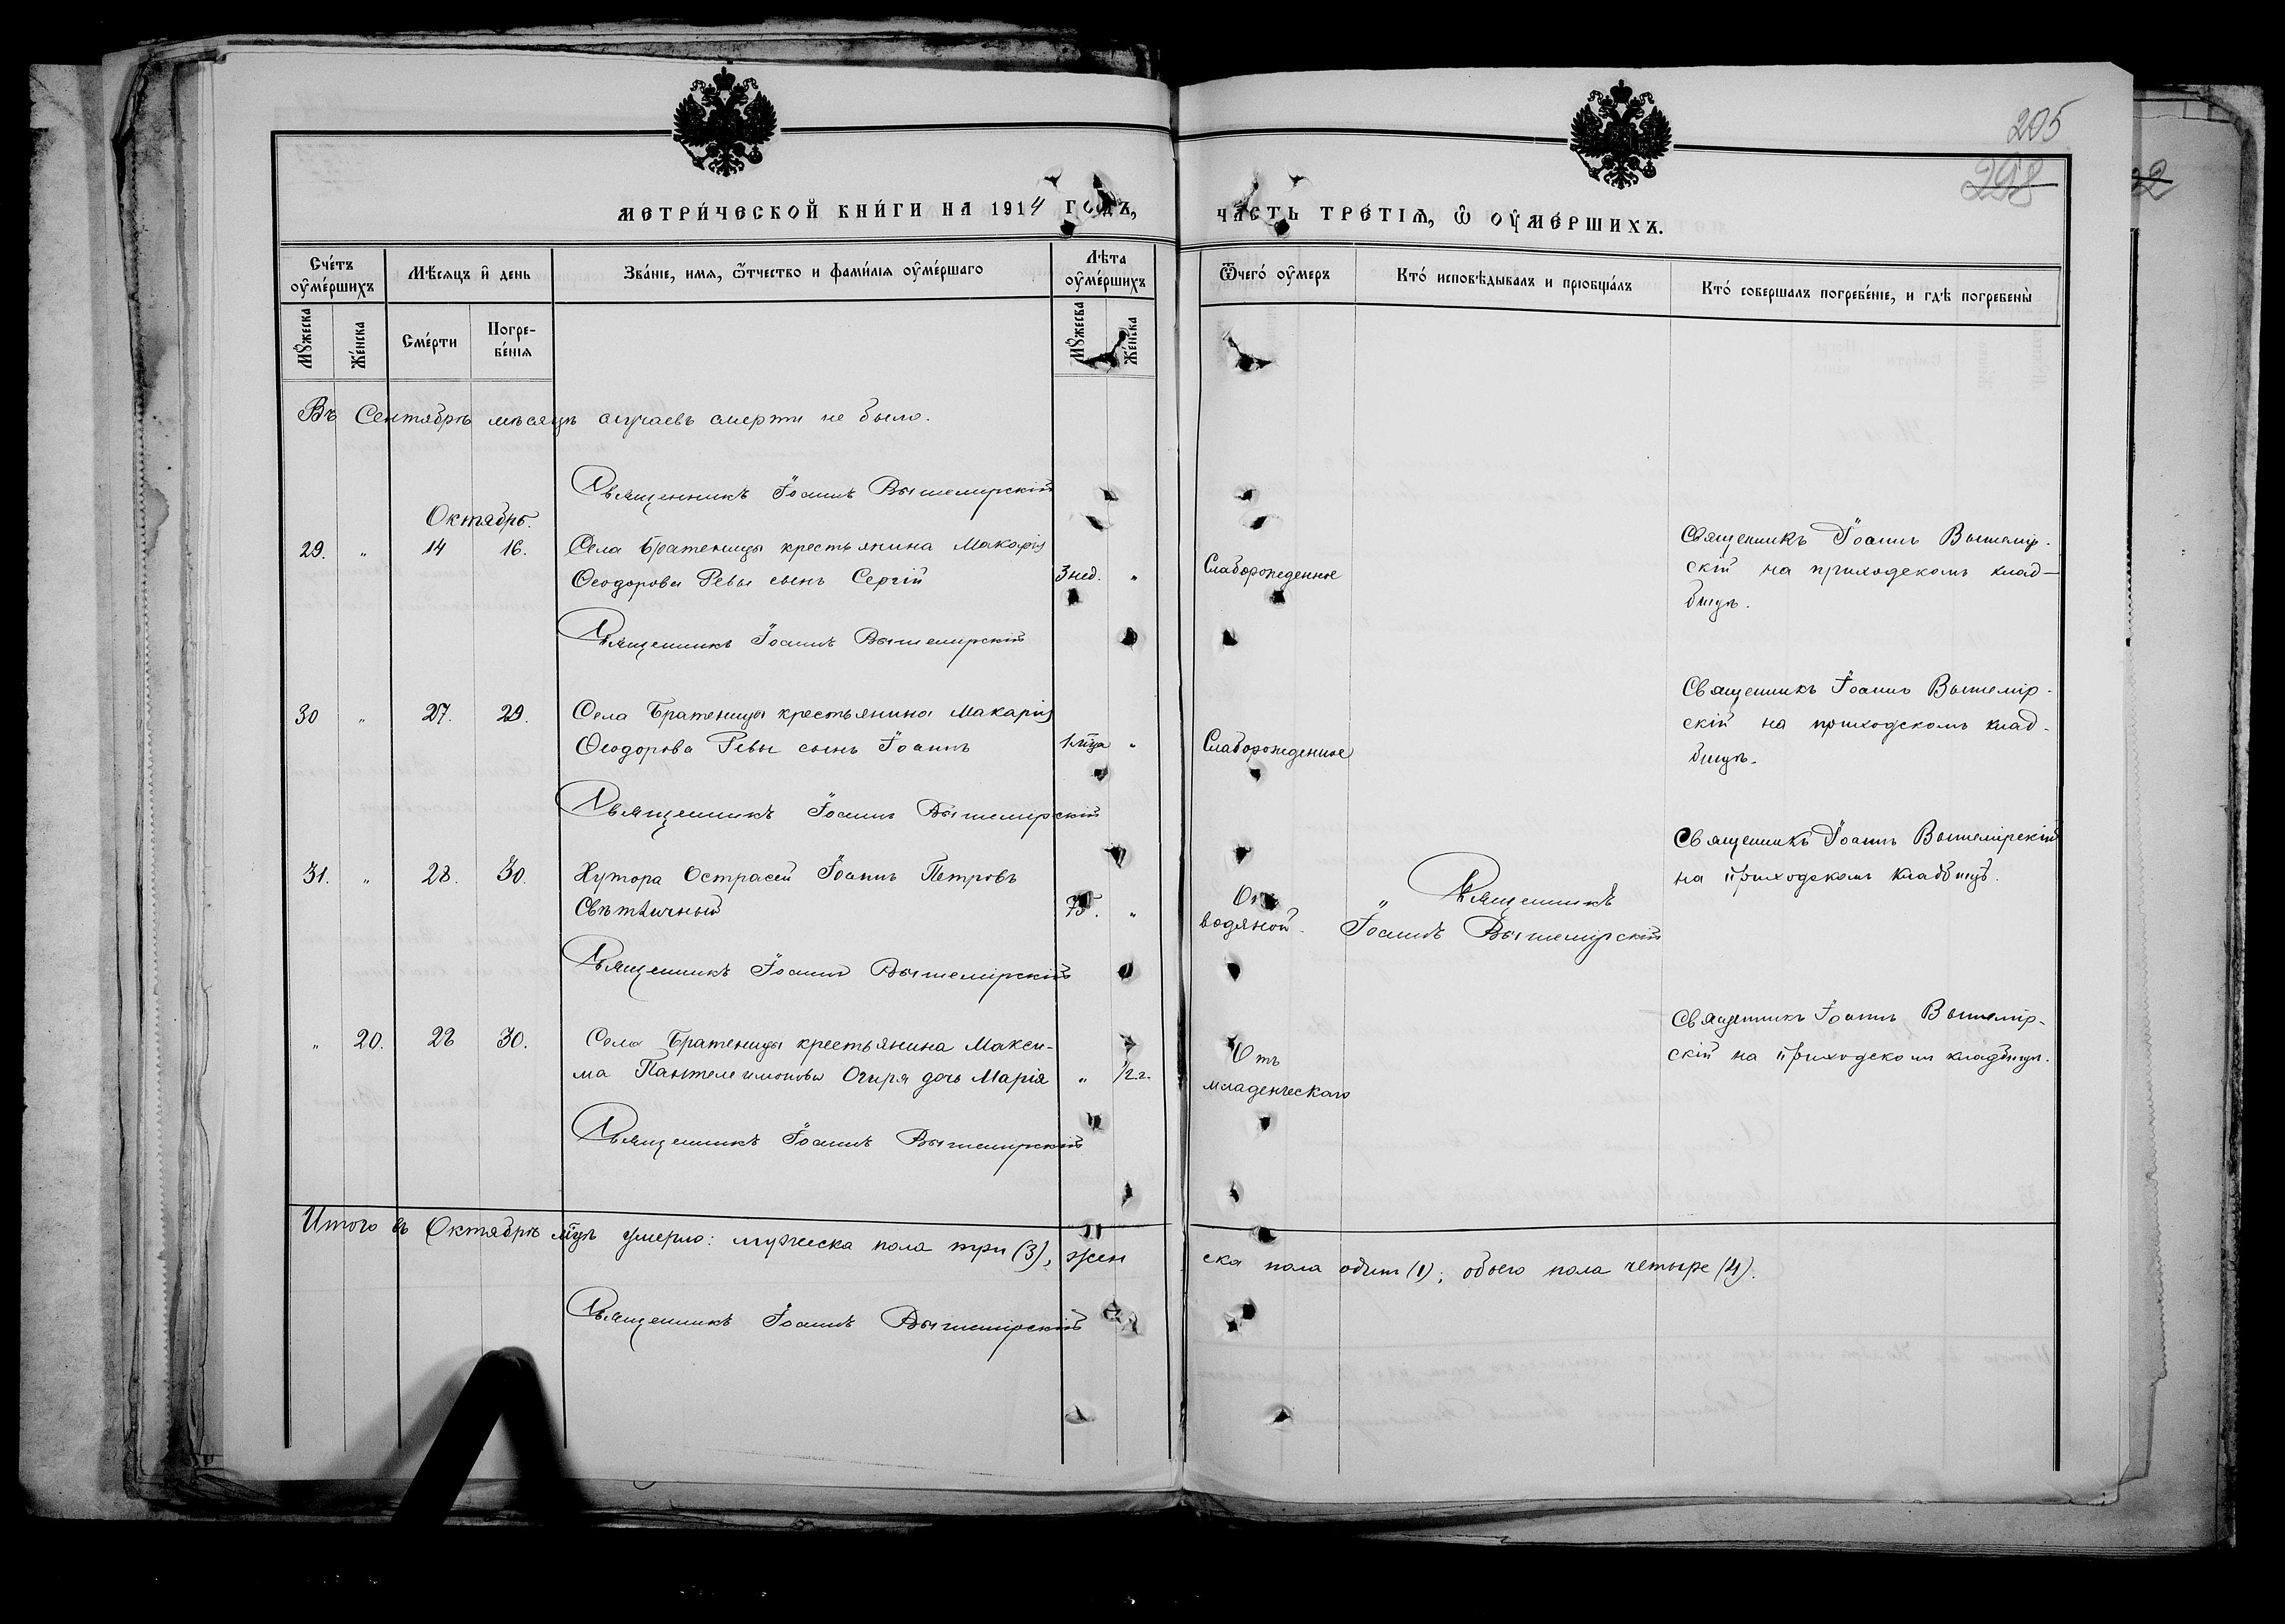 205
298
МЕТРИ́ЧЕСКОЙ КНИ́ГИ НА 1914 ГОДЪ,
ЧАСТЬ ТРЕ́ТІѦ, Ѡ҆ ОУ҆МЕ́РШИХЪ.
Сче́тъ оу҆ме́ршихъ
Мѣсяцъ и҆ день
Зва́ніе, имя, ѿтчество и фами́лія оу҆ме́ршаго
Лѣта оу҆ме́ршихъ
Ѿчего́ оу҆меръ
Кто́ исповѣдывалъ и пріобща́лъ
Кто́ совершалъ погребе́ніе, и гдѣ погребены̀
Мꙋ́жеска
Же́нска
Сме́рти
Погре-
бе́нія
Мꙋ́жеска
Же́нска
Въ Сентябрѣ мѣсяцѣ случаевъ смерти не было.
Священникъ Іоаннъ Вышемирскій
Октябрь.
29. „ 14 16. Села Братеницы крестьянина Макарія
Ѳеодорова Ревы сынъ Сергій 3 нед. „ Слаборожденное
Священникъ Іоаннъ Вышемір-
скій на приходскомъ клад-
бищѣ.
Священникъ Іоаннъ Вышемирскій
30 „ 27. 29. Села Братеницы крестьянина Макарія
Ѳеодорова Ревы сынъ Іоаннъ 1 мѣца „ Слаборожденное
Священникъ Іоаннъ Вышемір-
скій на приходскомъ клад-
бищѣ.
Священникъ Іоаннъ Вышемирскій
31. „ 28. 30. Хутора Острасей Іоаннъ Петровъ
Свѣтличный 75. „ Отъ
водяной.
Священникъ
Іоаннъ Вышемирскій
Священникъ Іоаннъ Вышемірскій
на приходскомъ кладбищѣ.
Священникъ Іоаннъ Вышемірскій
„ 20. 28 30. Села Братеницы крестьянина Макси-
ма Пантелеимонова Огиря дочь Марія „ 1/2 г. Отъ
младенческаго
Священникъ Іоаннъ Вышемір-
скій на приходскомъ кладбищѣ.
Священникъ Іоаннъ Вышемирскій
Итого въ Октябрѣ мѣцѣ умерло: мужеска пола три (3), жен
ска пола одинъ (1); обоего пола четыре (4).
Священникъ Іоаннъ Вышемірскій